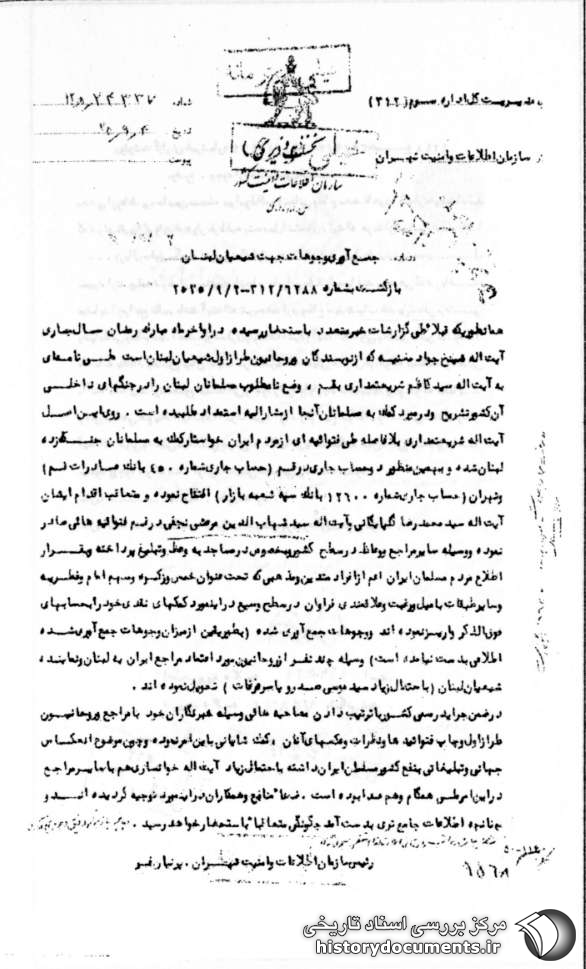 به مدیریت کل اداره سوم (۳۱۲)
شماره
از سازمان اطلاعات و امنیت تهران
تاریخ
پیوست
نخست وزیری
سازمان اطلاعات و امنیت کشور
درباره جمع آوری وجوهات جهت شیعیان لبنان
بازگشت بشماره ۳۱۲/۶۲۸۸-۲۵۳۵/۹/۲
همانطوریکه قبلا طی گزارشات خبر متعدد باستحضار رسیده در اواخر ماه مبارک رمضان سال جاری
آیت اله شیخ جواد مغنیه که از نویسندگان و روحانیون طراز اول شیعیان لبنان است طی نامه ای
به آیت اله سید کاظم شریعتمداری بقم ، وضع نامطلوب مسلمانان لبنان را در جنگهای داخلی
آن کشور تشریح و در مورد کمک به مسلمانان آنجا از مشارالیه استمداد طلبیده است . روی این اصل
آیت اله شریعتمداری بلافاصله طی فتوائیه ای از مردم ایران خواستار کمک به مسلمانان جنگ زده
لبنان شده و بهمین منظور دو حساب جاری در قم ( حساب جاری شماره ۴۵۰ بانک صادرات قم )
و تهران ( حساب جاری شماره ۱۲۶۰۰ بانک سپه شعبه بازار ) افتتاح نموده و متعاقب اقدام ایشان
آیت اله سید محمدرضا گلپایگانی و آیت اله سید شهاب الدین مرعشی نجفی در قم فتوائیه هائی صادر
نموده و وسیله سایر مراجع و وعاظ در سطح کشور و بخصوص در مساجد به وعظ و تبلیغ پرداخته و بقرار
اطلاع مردم مسلمان ایران اعم از افراد متدین و مذهبی که تحت عنوان خمس و زکوه و سهم امام و فطریه
و سایر طبقات با میل و رغبت و علاقمندی فراوان در سطح وسیع در اینمورد کمکهای نقدی خود را بحسابهای
فوق الذکر واریز نموده اند و وجوهات جمع آوری شده ( بطور یقین از میزان وجوهات جمع آوری شده
اطلاعی بدست نیامده است ) وسیله چند نفر از روحانیون مورد اعتماد مراجع ایران به لبنان و نماینده
شیعیان لبنان ( باحتمال زیاد سید موسی صدر و یاسر عرفات ) تحویل نموده اند .
در ضمن جراید رسمی کشور با ترتیب دادن مصاحبه هائی وسیله خبرنگاران خود با مراجع و روحانیون
طراز اول و چاپ فتوائیه ها و نظرات و عکسهای آنان ، کمک شایانی باین امر نموده و چون موضوع انعکاس
جهانی و تبلیغاتی بنفع کشور مسلمان ایران داشته باحتمال زیاد آیت اله خوانساری هم با سایر مراجع
در این امر ملی همگام و هم صدا بوده است . ضمنا منابع و همکاران در اینمورد توجیه گردیده اند و
چنانچه اطلاعات جامع تری بدست آمد چگونگی متعاقبا باستحضار خواهد رسید .
رئیس سازمان اطلاعات و امنیت تهران . پرنیان فر
مرکز بررسی اسناد تاریخی
historydocuments.ir